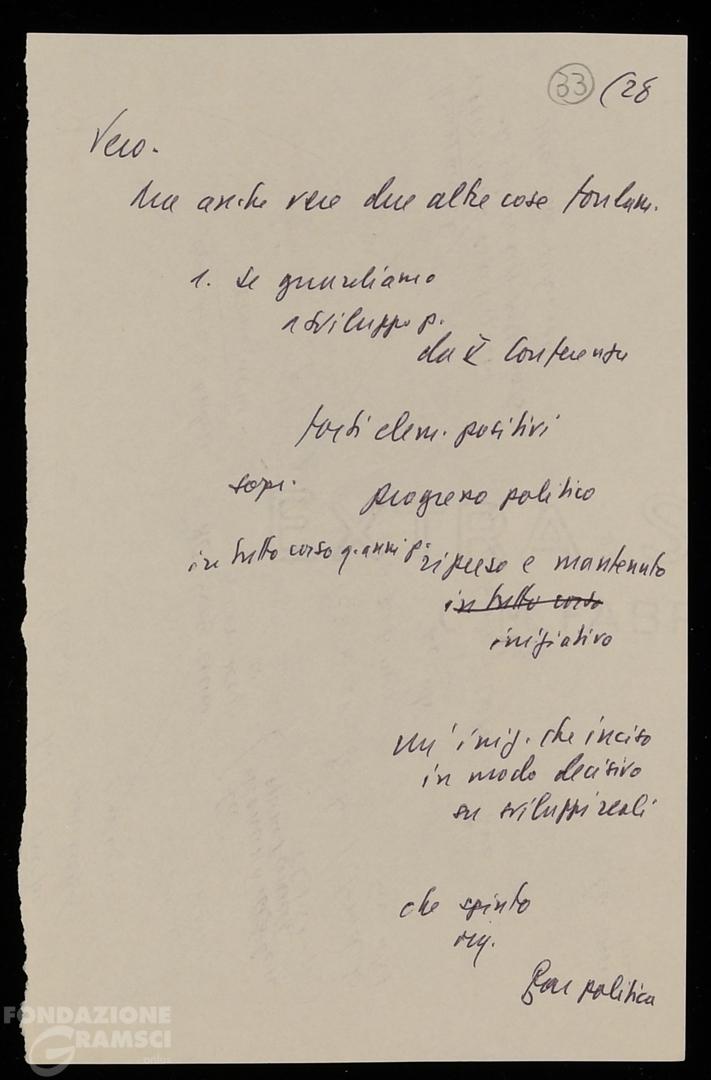 33 (28
Vero.
Ma anche vere due altre cose fondam.
1. se guardiamo
sviluppo p.
da X Conferenza
forti elem. positivi
sopr. progresso politico
in tutto corso q. anni p. ripreso e mantenuto
in tutto corso
iniziativa
un' iniz. che inciso
in modo decisivo
su sviluppi reali
che spinto
politica
FONDAZIONE
GRAMSCI
onlus